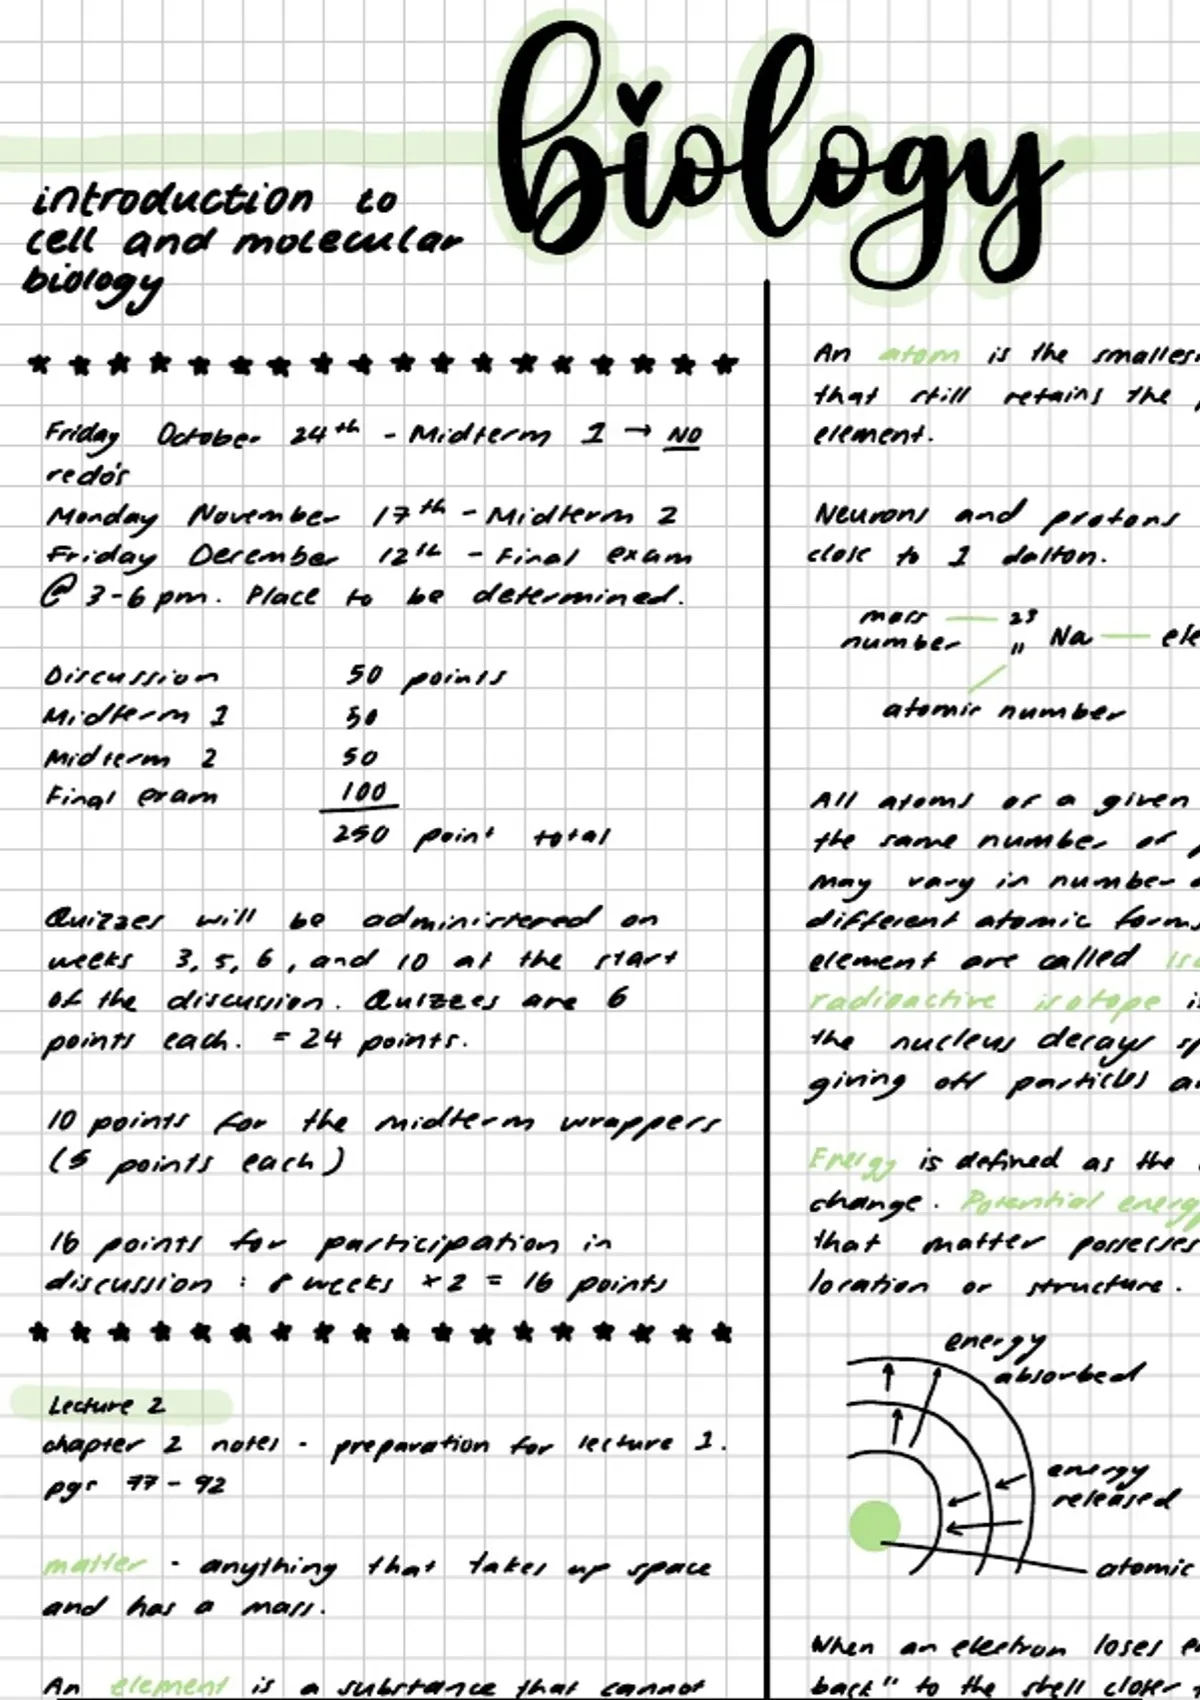 biology
introduction to
cell and molecular
biology
Friday October 24th - Midterm 1 → NO
redo's
Monday November 17th - Midterm 2
Friday December 12th - Final exam
@ 3-6pm. Place to be determined.
Discussion 50 points
Midterm 1 50
Midterm 2 50
Final exam 100
250 point total
Quizzes will be administered on
weeks 3, 5, 6, and 10 at the start
of the discussion. Quizzes are 6
points each. = 24 points.
10 points for the midterm wrappers
(5 points each)
16 points for participation in
discussion : 8 weeks x 2 = 16 points
Lecture 2
chapter 2 notes - preparation for lecture 1.
pgs 77-92
matter - anything that takes up space
and has a mass.
An element is a substance that cannot
An atom is the smalles
that still retains the
element.
Neurons and protons
close to 1 dalton.
mass 23
number 11 Na ele
atomic number
All atoms of a given
the same number of
may vary in number
different atomic forms
element are called iso
radioactive isotope is
the nucleus decays sp
giving off particles an
Energy is defined as the
change. Potential energy
that matter possesses
location or structure.
energy
absorbed
energy
released
atomic
When an electron loses e
back" to the shell closer